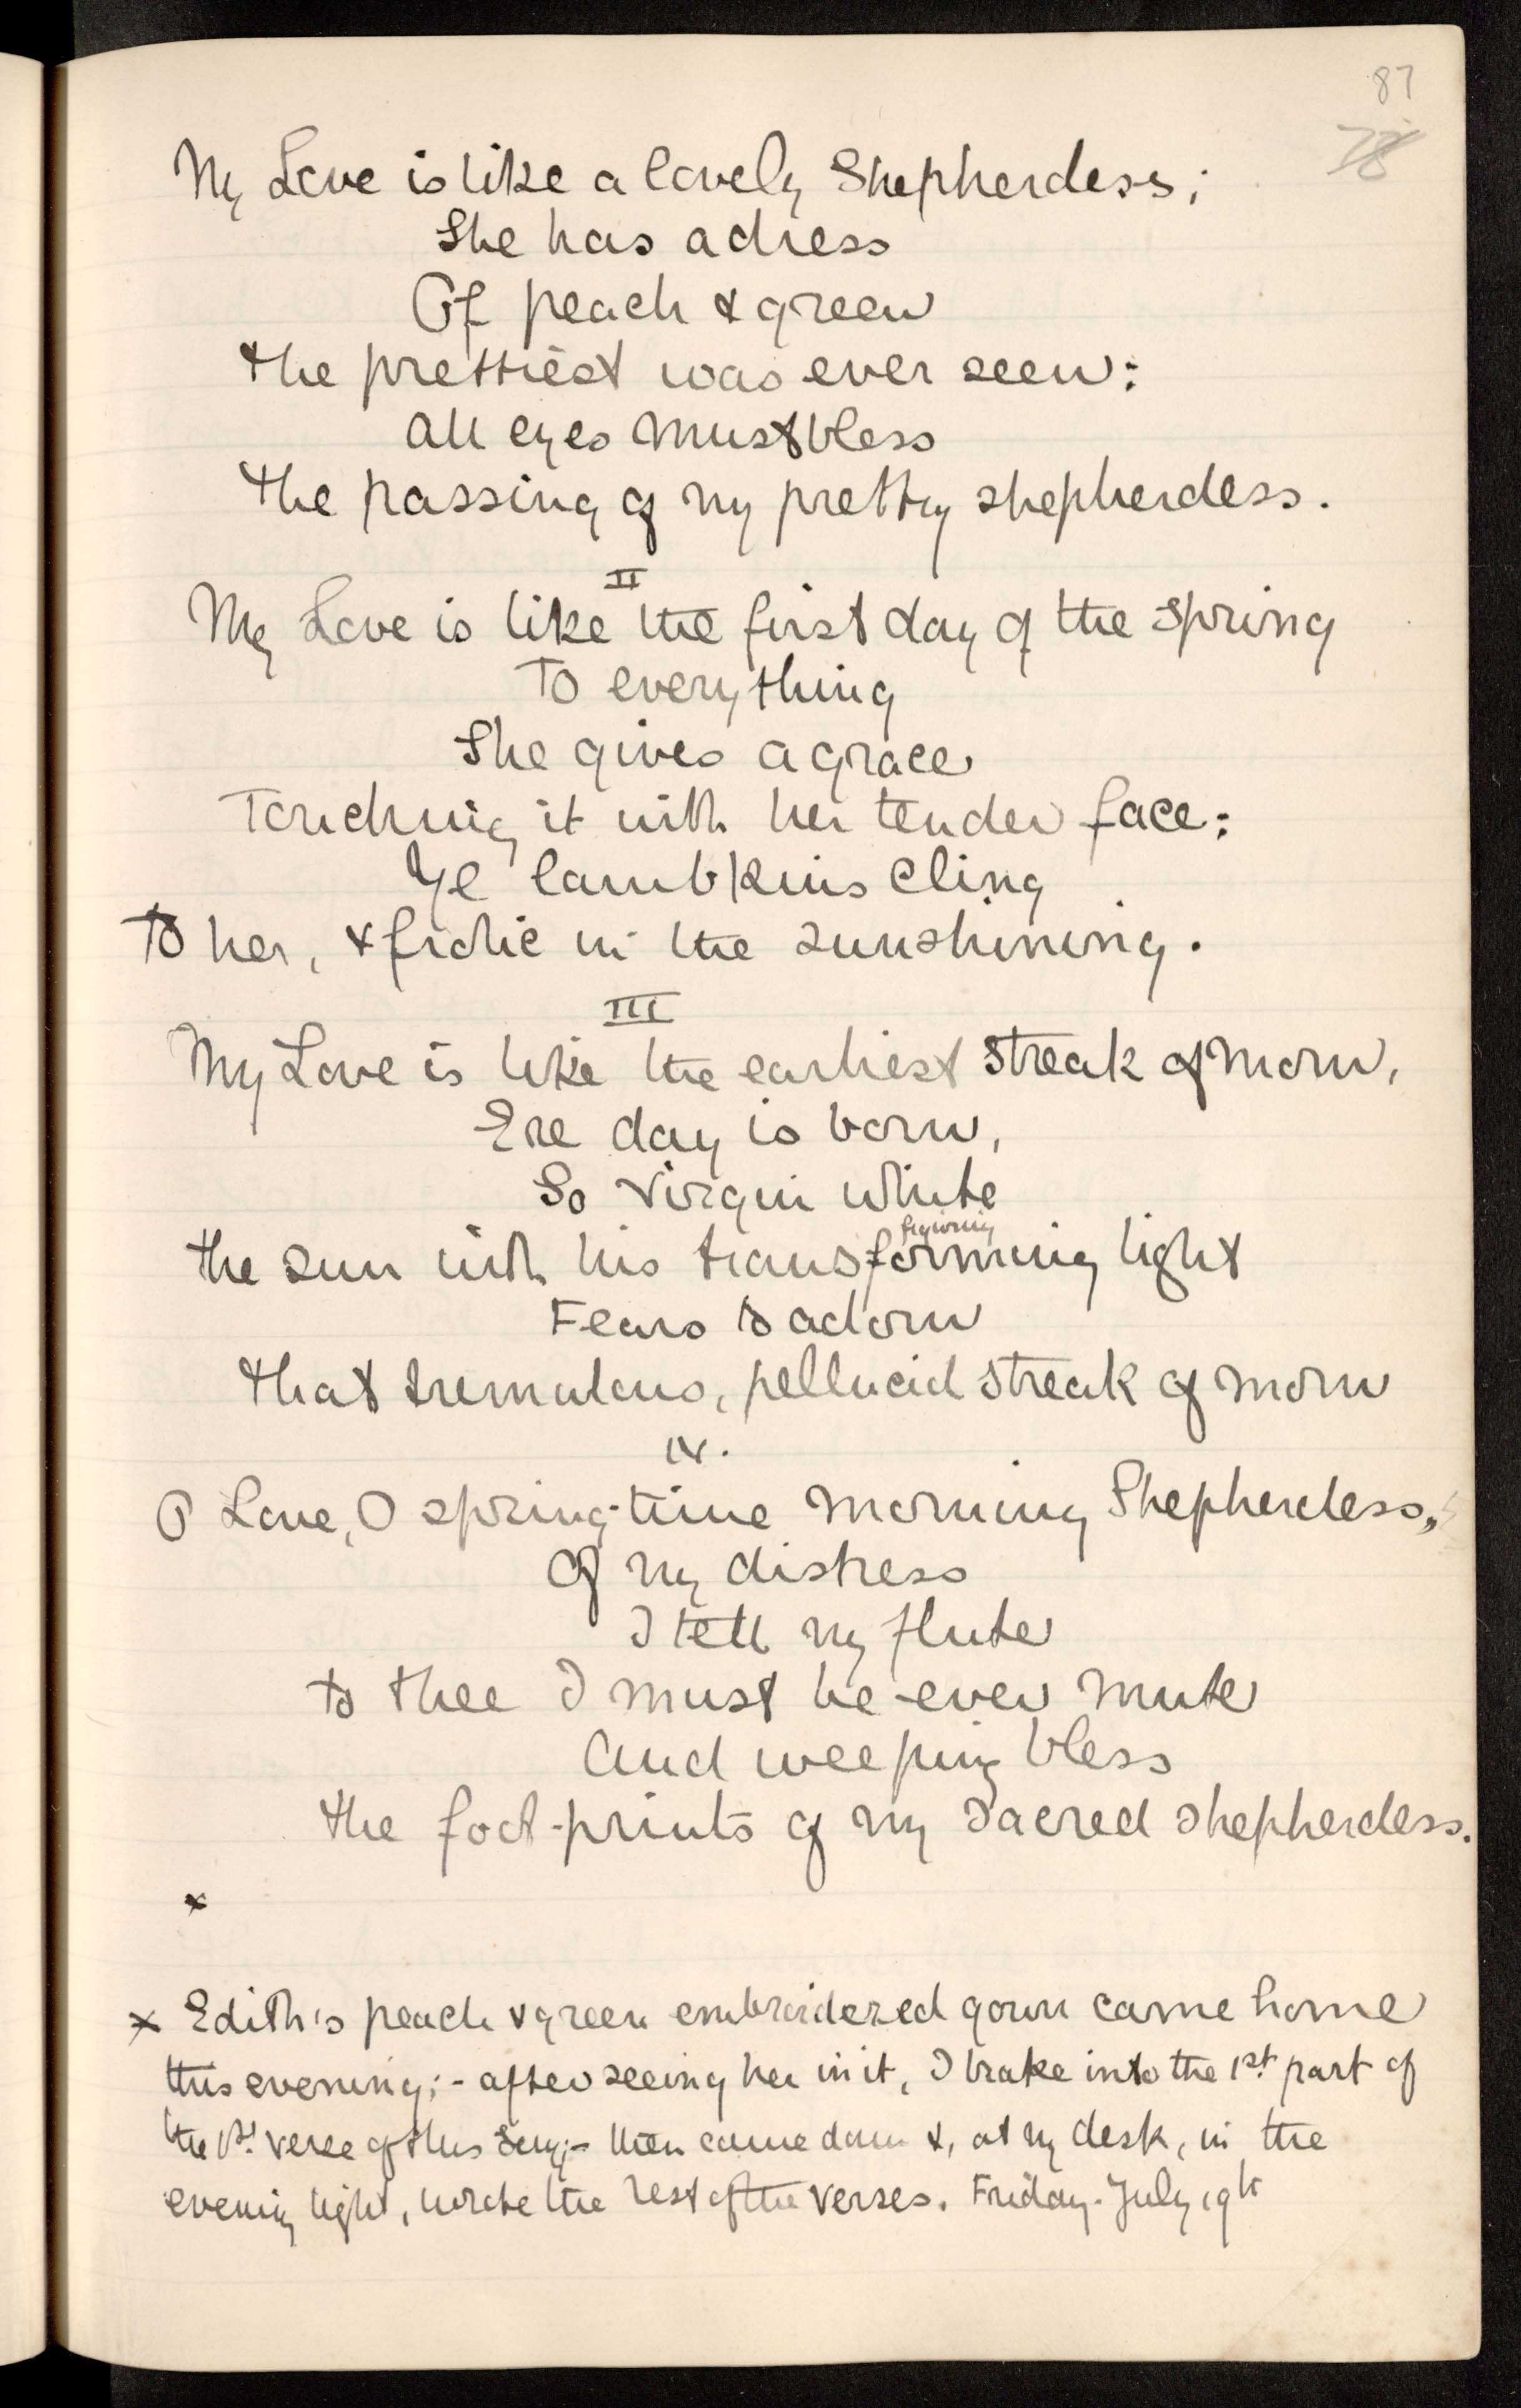 87
78
My Love is like a lovely Shepherdess;
She has a dress
Of peach & green
the prettiest was ever seen:
All eyes must bless
the passing of my pretty shepherdess.
II
My Love is like the first day of the spring
To everything
She gives a grace
Touching it with her tender face:
Ye lambkins cling
To her, & frolic in the sunshining.
III
My Love is like the earliest streak of morn,
Ere day is born,
So virgin white
figuring
the sun with his transforming light
Fears to adorn
that tremulous, pellucid streak of morn
IV.
O Love, O spring-time morning Shepherdess,
Of my distress
I tell my flute
to thee I must be ever mute
And weeping bless
the foot-prints of my sacred shepherdess.
x
x Edith's peach & green embroidered gown came home
this evening; - after seeing her in it, I brake into the 1st part of
the 1st verse of this Song; - then came down &, at my desk, in the
evening light, wrote the rest of the verses. Friday. July 19th